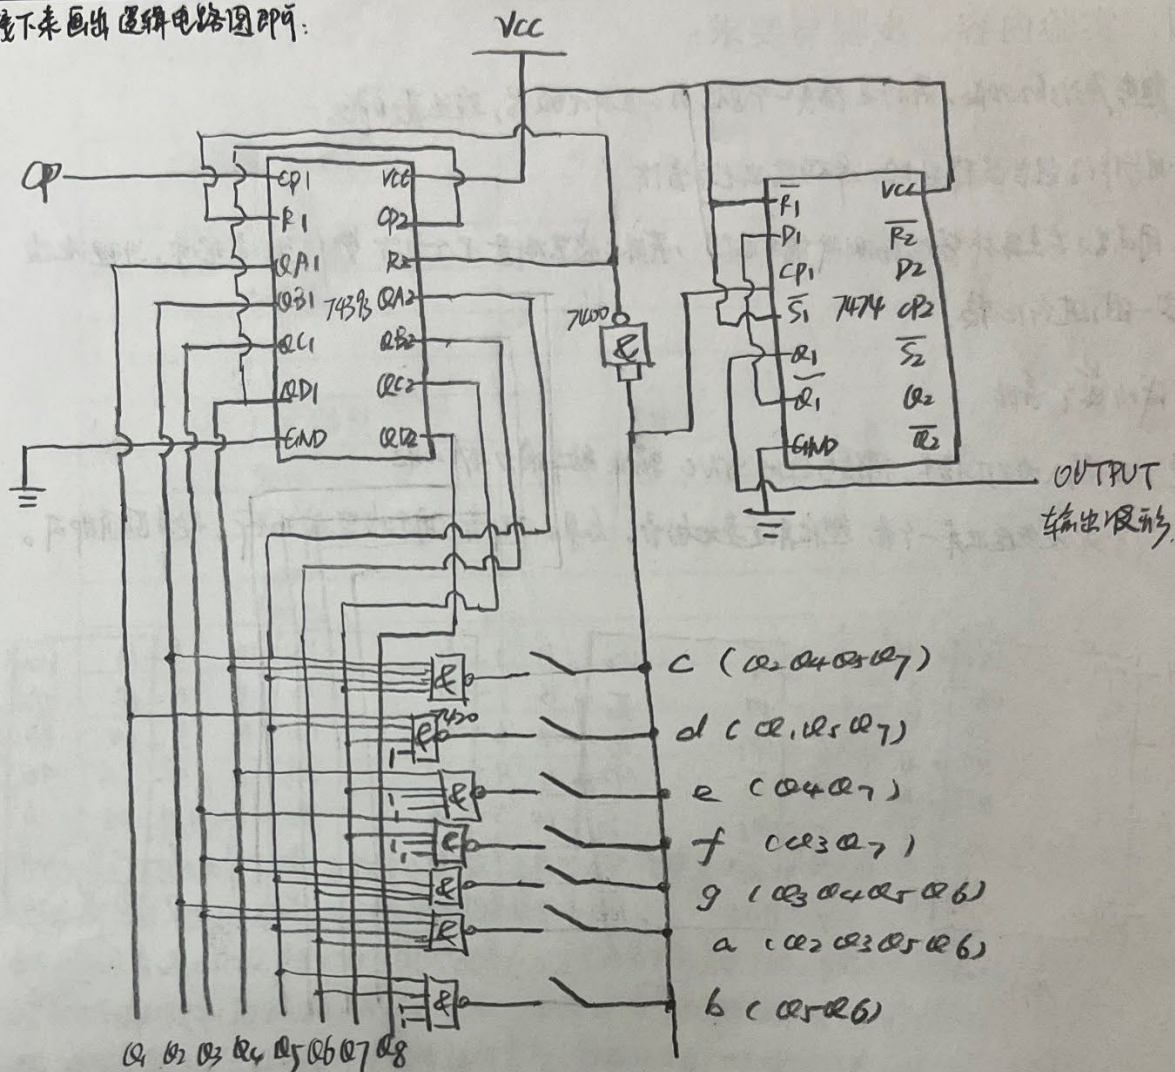 接下来画出逻辑电路图即可:
VCC
CP
CP1 VCC
R1 CP2
QA1 R2
QB1 74393 QA2
QC1 QB2
QD1 QC2
GND QD2
7400
&
R̅1 VCC
D1 R̅2
CP1 D2
S̅1 7474 CP2
Q1 S̅2
Q̅1 Q2
GND Q̅2
OUTPUT
输出波形
& c (Q2Q4Q5Q7)
7420
& 1 d (Q1Q5Q7)
& 1 e (Q4Q7)
& 1 f (Q3Q7)
& g (Q3Q4Q5Q6)
& a (Q2Q3Q5Q6)
& 1 b (Q5Q6)
Q1 Q2 Q3 Q4 Q5 Q6 Q7 Q8